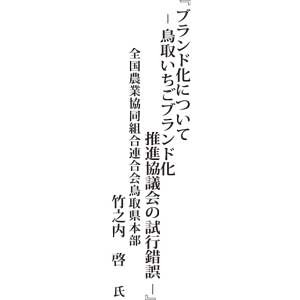 『ブランド化について
－鳥取いちごブランド化
推進協議会の試行錯誤－』
全国農業協同組合連合会鳥取県本部
竹之内　啓　氏